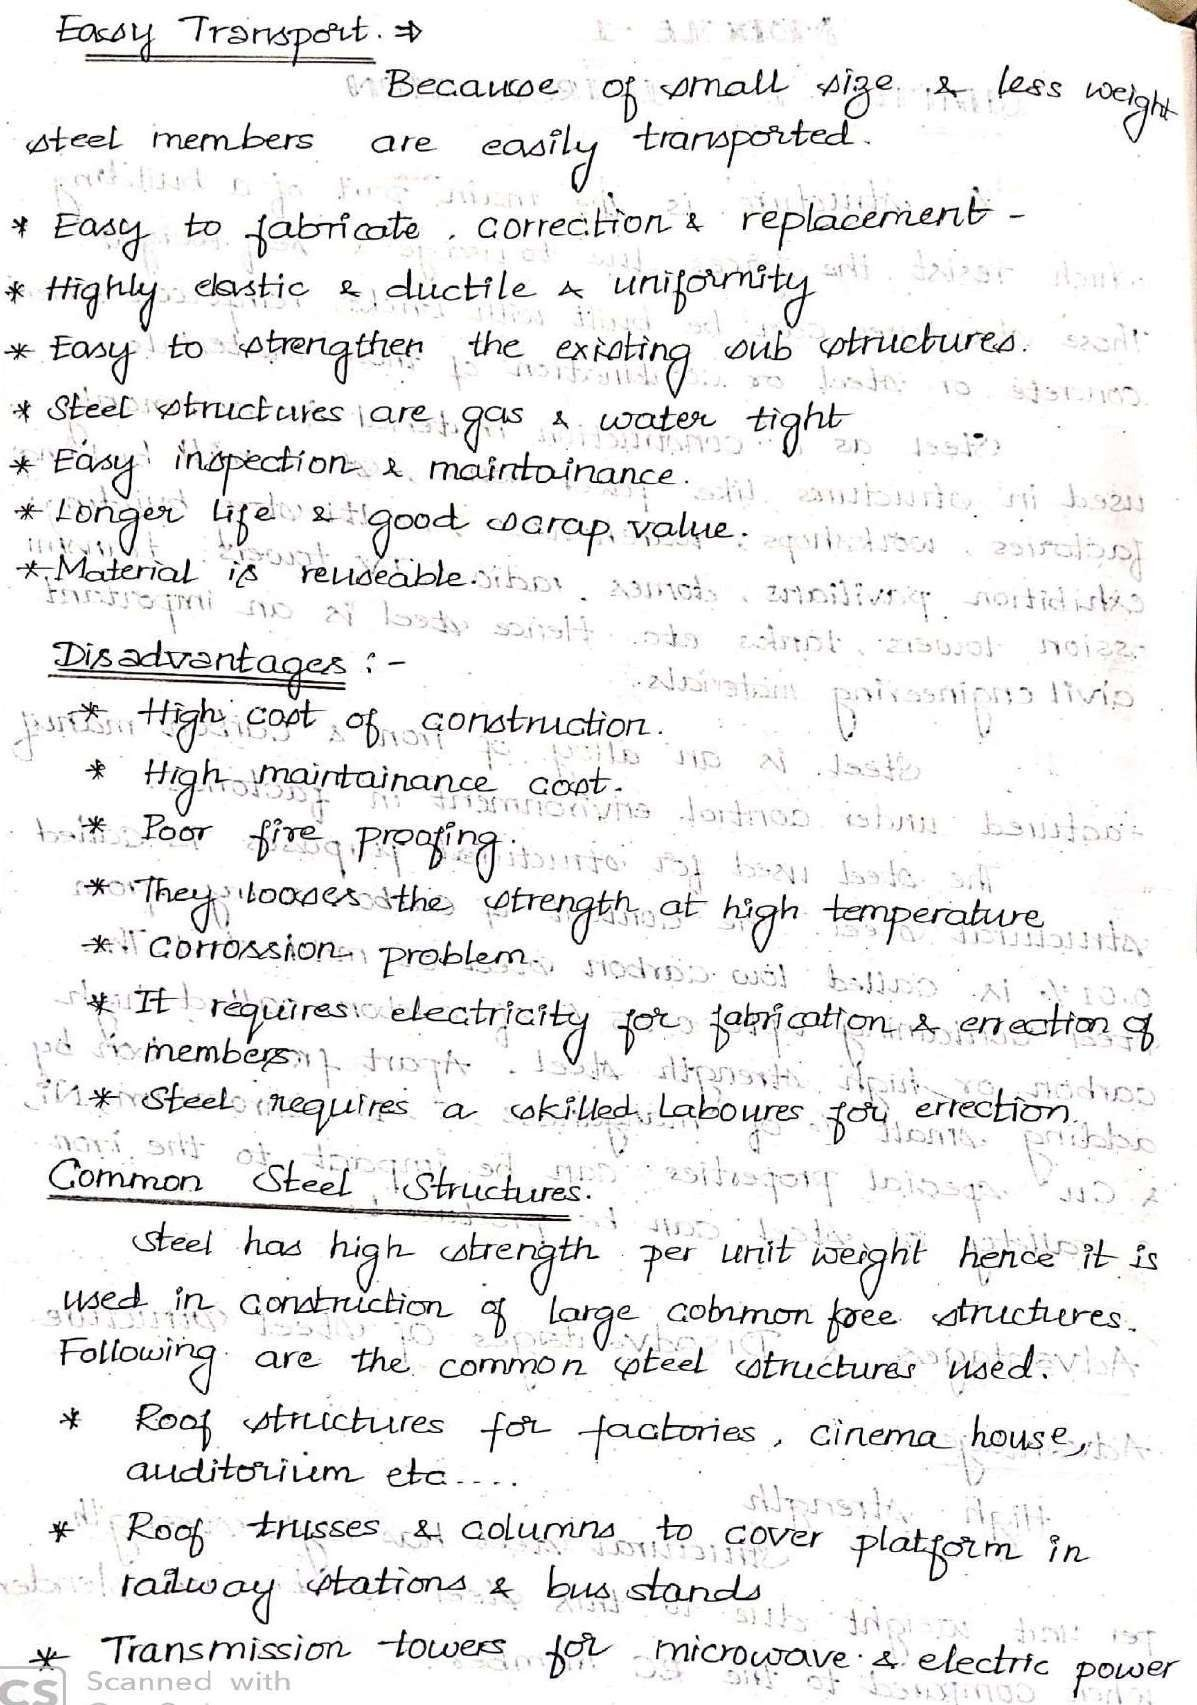 Easy Transport. ⇒
Because of small size & less weight
steel members are easily transported.
* Easy to fabricate, correction & replacement -
* Highly elastic & ductile & uniformity
* Easy to strengthen the existing sub structures.
* Steel structures are gas & water tight
* Easy inspection & maintainance.
* Longer life & good scrap value.
* Material is reuseable.
Disadvantages :-
* High cost of construction.
* High maintainance cost.
* Poor fire proofing.
* They looses the strength at high temperature
* Corrossion problem.
* It requires electricity for fabrication & errection of
members
* Steel requires a skilled Laboures for errection.
Common Steel Structures.
Steel has high strength per unit weight hence it is
used in construction of large cobnmon free structures.
Following are the common steel structures used.
* Roof structures for factories, cinema house,
auditorium etc....
* Roof trusses & columns to cover platform in
railway stations & bus stands
* Transmission towers for microwave & electric power
CS Scanned with